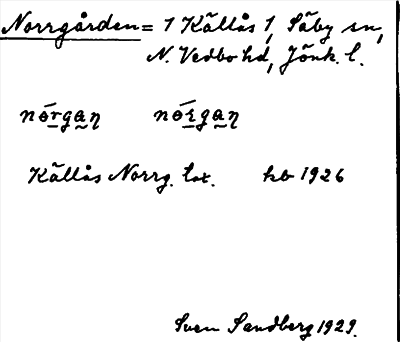 Norrgården = 1 Källås 1, Säby sn,
N. Vedbo hd, Jönk. l.
nórgaη nórgaη
Källås Norrg. lst. kb 1926
Sven Sandberg 1929.